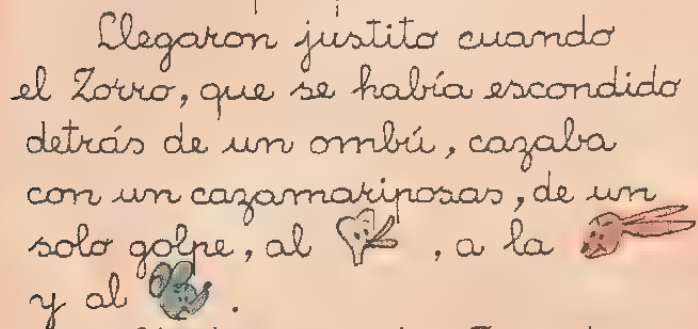 Llegaron justito cuando
el Zorro, que se había escondido
detrás de un ombú, cazaba
con un cazamariposas, de un
solo golpe, al , a la
y al .